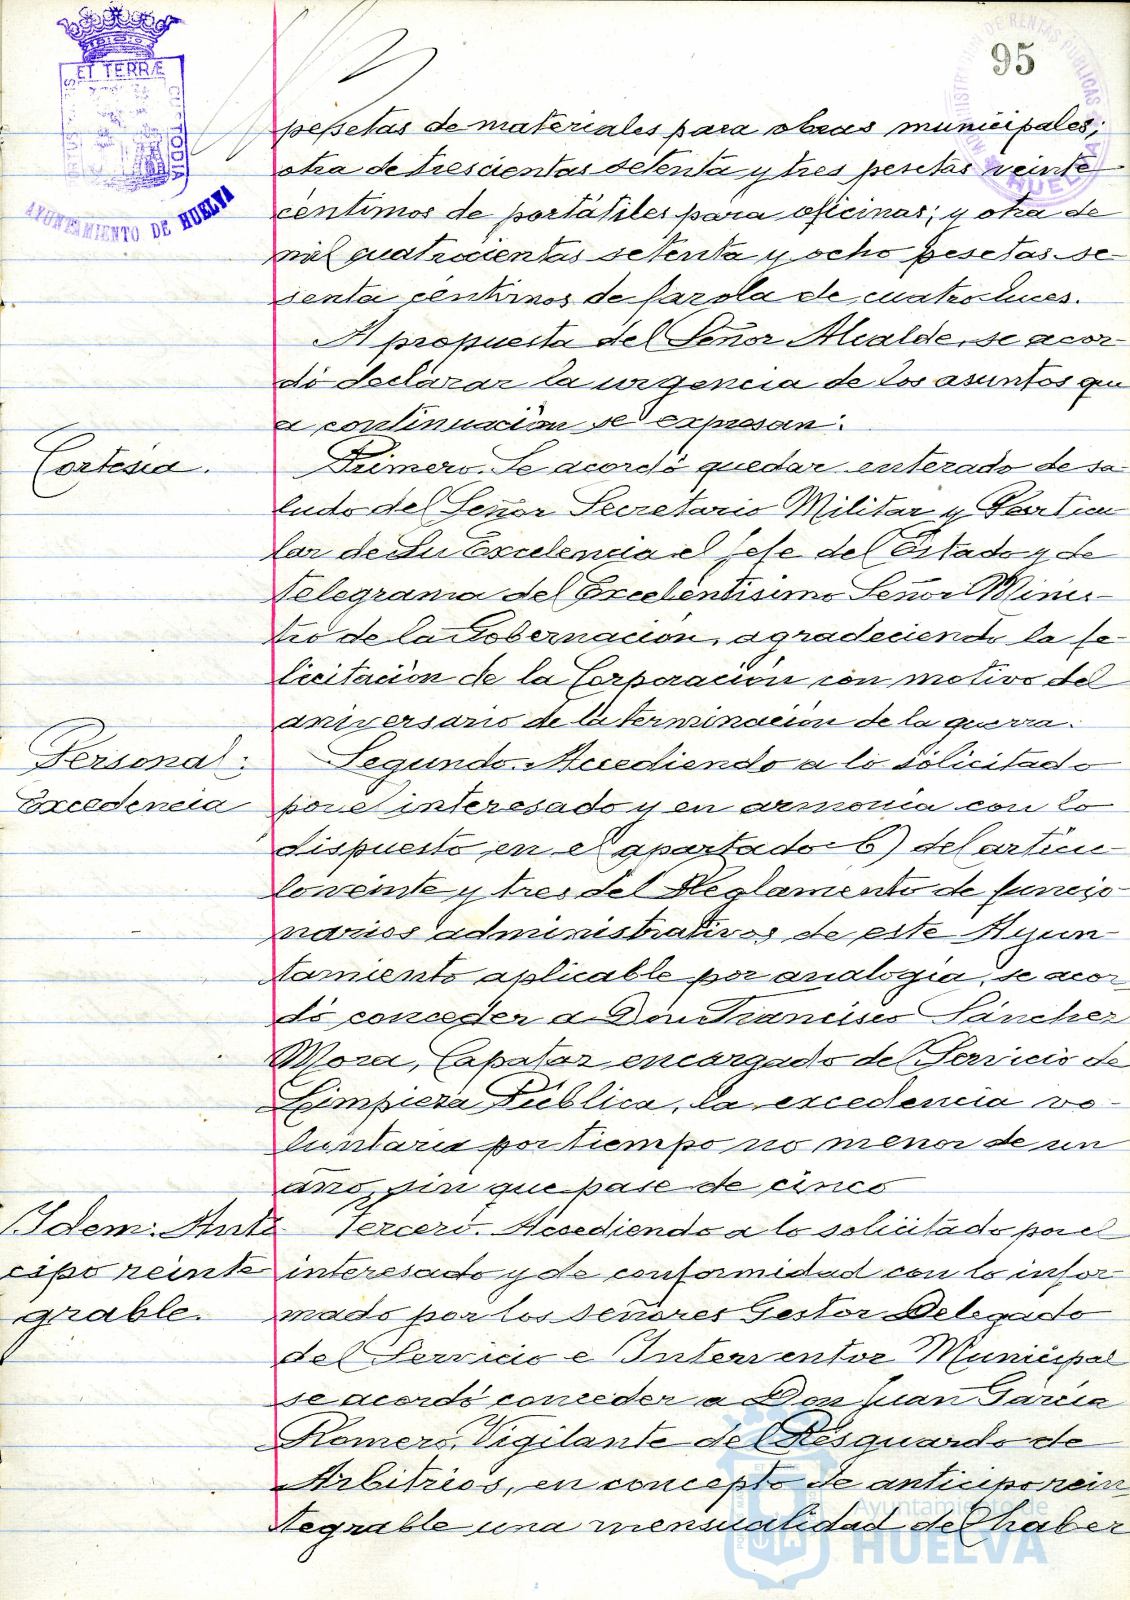 95
ET TERRÆ
CUSTODIA
AYUNTAMIENTO DE HUELVA
HUELVA
pesetas de materiales para obras municipales;
otra de trescientas setenta y tres pesetas veinte
céntimos de portátiles para oficinas; y otra de
mil cuatrocientas setenta y ocho pesetas se-
senta céntimos de farola de cuatro luces.
A propuesta del Señor Alcalde, se acor-
dó declarar la urgencia de los asuntos que
a continuación se expresan:
Cortesia.
Primero. Se acordó quedar enterado de sa-
ludo del Señor Secretario Militar y Particu
lar de Su Excelencia el Jefe del Estado y de
telegrama del Excelentísimo Señor Minis-
tro de la Gobernación, agradeciendo la fe-
licitación de la Corporación con motivo del
aniversario de la terminación de la guerra.
Personal:
Excedencia
Segundo. Accediendo a lo solicitado
por el interesado y en armonía con lo
dispuesto en el apartado b) del artícu-
lo veinte y tres del Reglamento de funcio-
narios administrativos de este Ayun-
tamiento aplicable por analogía, se acor-
dó conceder a Don Francisco Sánchez
Mora, Capataz encargado del Servicio de
Limpieza Pública, la excedencia vo-
luntaria por tiempo no menor de un
año, sin que pase de cinco
Idem: Anti
cipo reinte
grable.
Tercero. Accediendo a lo solicitado por el
interesado y de conformidad con lo infor-
mado por los señores Gestor Delegado
del Servicio e Interventor Municipal
se acordó conceder a Don Juan García
Romero, Vigilante del Resguardo de
Arbitrios, en concepto de anticipo rein-
tegrable una mensualidad del haber
Ayuntamiento de
HUELVA